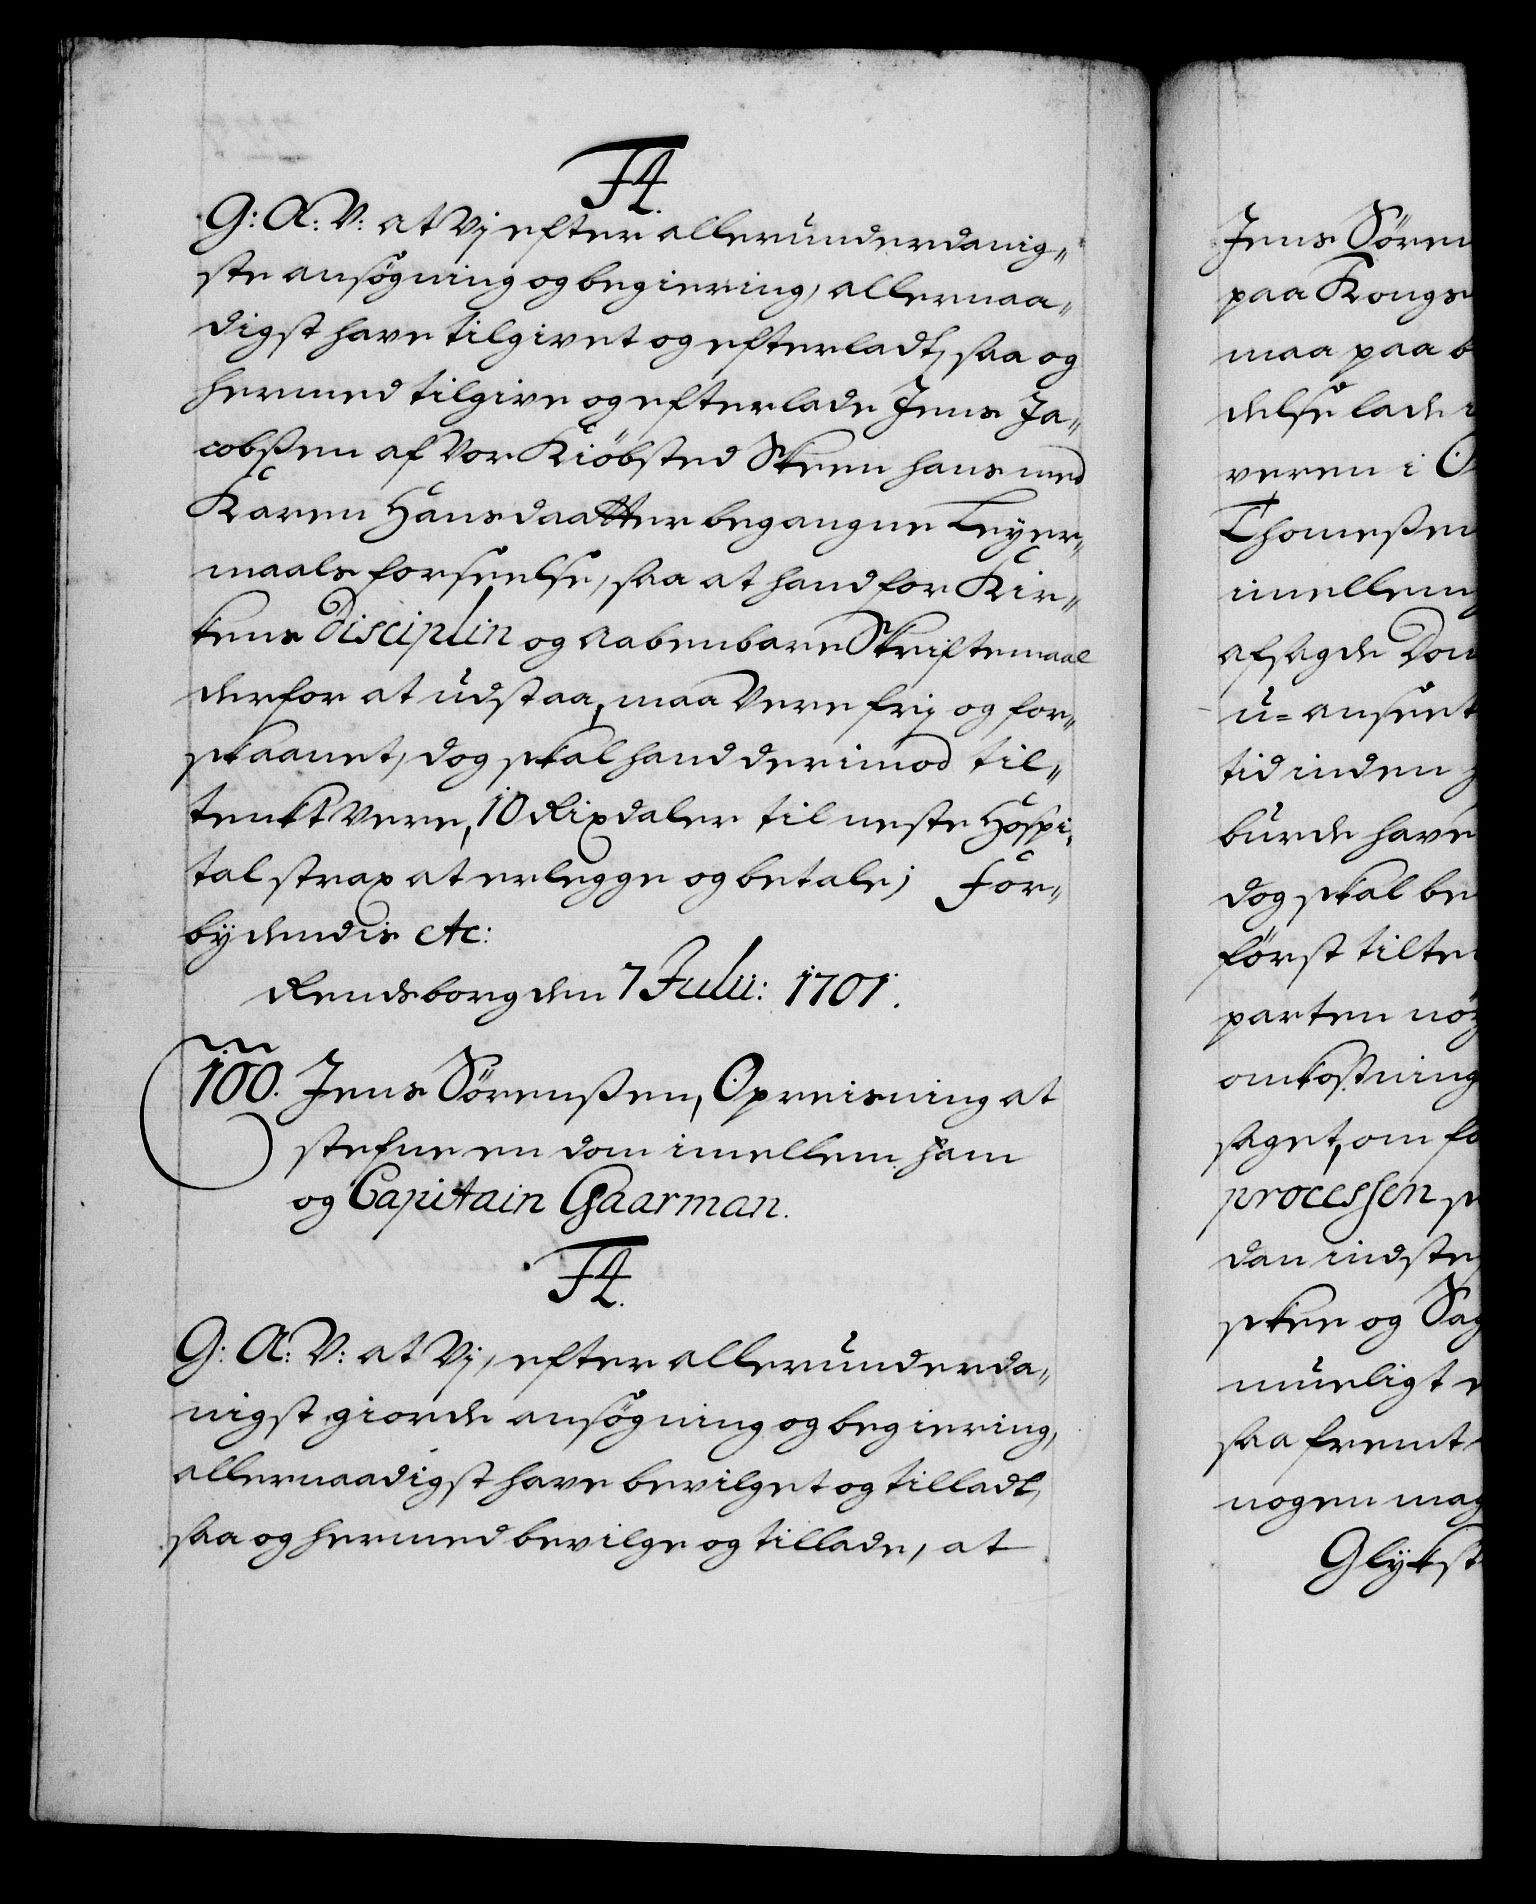 F4.
G: A: V: at Vj efter allerunderdanig„
ste ansögning og begiering, allernaa„
digst have tilgivet og efterladt, saa og
hermed tilgive og efterlade Jens Ja„
cobßen af Vor Kiöbsted Skeen hans med
Karen Hansdaatter begangne Leyer„
maals forseelse, saa at hand for Kir„
kens Disciplin og aabenbare Skriftemaal
derfor at udstaa, maa Vere frij og for„
skaanet, dog skal hand derimod til„
tenkt Vere, 10 Rixdaler til neste Hospi„
tal strax at erlegge og betale; For„
bydendis etc:
Rendsborg den 7 Julii: 1701.
100. Jens Sörenßen, Opreisning at
stefne en dom imellem ham
og Capitain Gaarman.
F4.
G: A: V: at Vj, efter allerunderda„
nigst giorde ansögning og begiering,
allernaadigst have bevilget og tilladt,
saa og hermed bevilge og tillade, at
Jens Sören
paa Kongs
maa paa b
delse lade
veren i O
Thomeßen
imellem
afsagde Dom
u=anseet
tid inden
burde have
dog skal be
först tilte
parten nöy
omkostning
saget, om fo
processen s
dan indste
skee og Sag
mueligt
saa fremt
nogen mag
Glykst